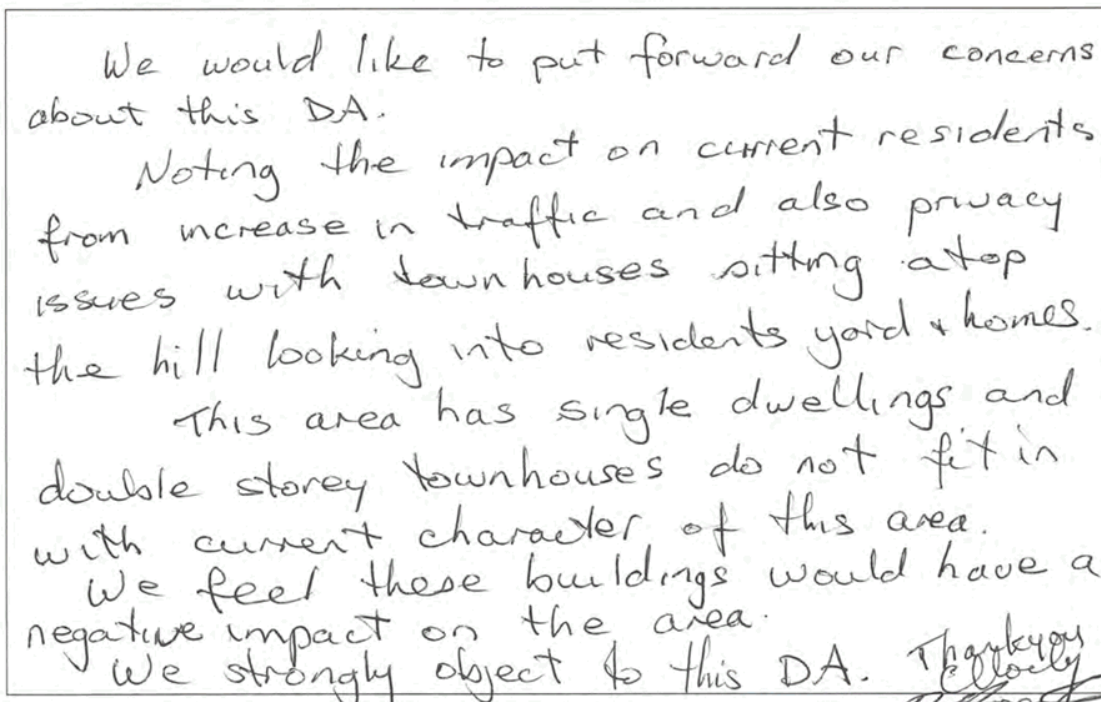 We would like to put forward our concerns
about this DA.
Noting the impact on current residents
from increase in traffic and also privacy
issues with townhouses sitting atop
the hill looking into residents yard + homes.
This area has single dwellings and
double storey townhouses do not fit in
with current character of this area.
We feel these buildings would have a
negative impact on the area.
We strongly object to this DA. Thankyou